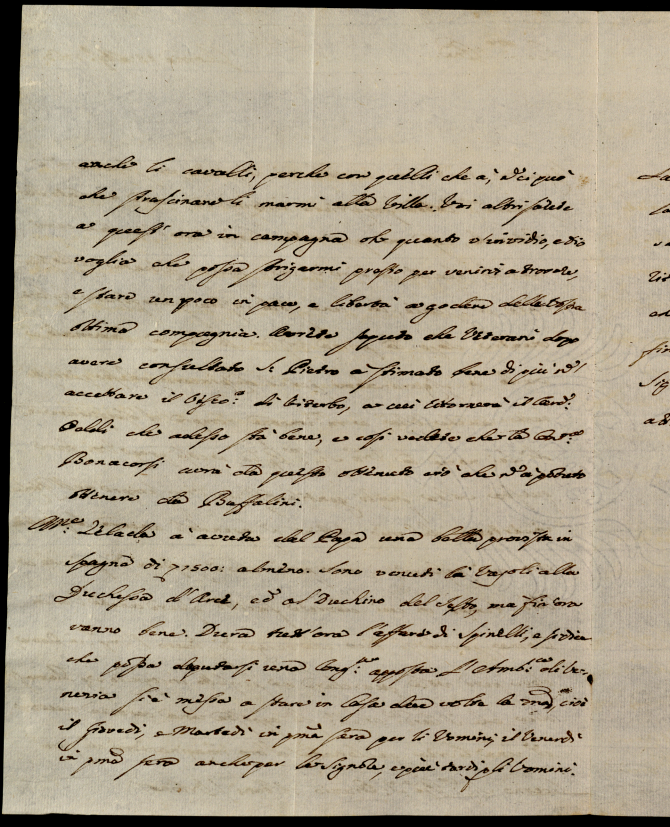 anche li cavalli, perche con quelli che à, no ci può
che strascinare li marmi alla Villa. Voi altri sarete
a quest'ora in campagna oh quanto v'invidio, e dio
voglia che possa strigarmi presto per venirvi a trovare,
e stare un poco in pace, e libertà a godere della vostra
ottima compagnia. Avrete saputo che Veterani dopo
avere consultato S. Pietro à stimato bene di più no
accettare il Vesco.º di Viterbo, a cui ritornerà il Card.e
Oddi che adesso stà bene, e così vedete che la
Bonacorsi avrà da questo ottenuto ciò che no à potuto
ottenere da Buffalini.
Zelada à avuta dal Papa una bella provista in
Spagna di 71500: almeno. Sono venuti là Vajoli alla
Duchessa d'Arce, ed al Duchino del Sesto, ma fin'ora
vanno bene. Dura tutt'ora l'affare di Spinelli, e si dice
che possa deputarsi una Cong.ne apposta. L'Amb.ce di Ve-
nezia si è messa a stare in Casa due volte la cioè
il Giovedì, e Martedì in pma sera per li Uomini, il Venerdì
in pma sera anche per le Signore, e più tardi gli Uomini.